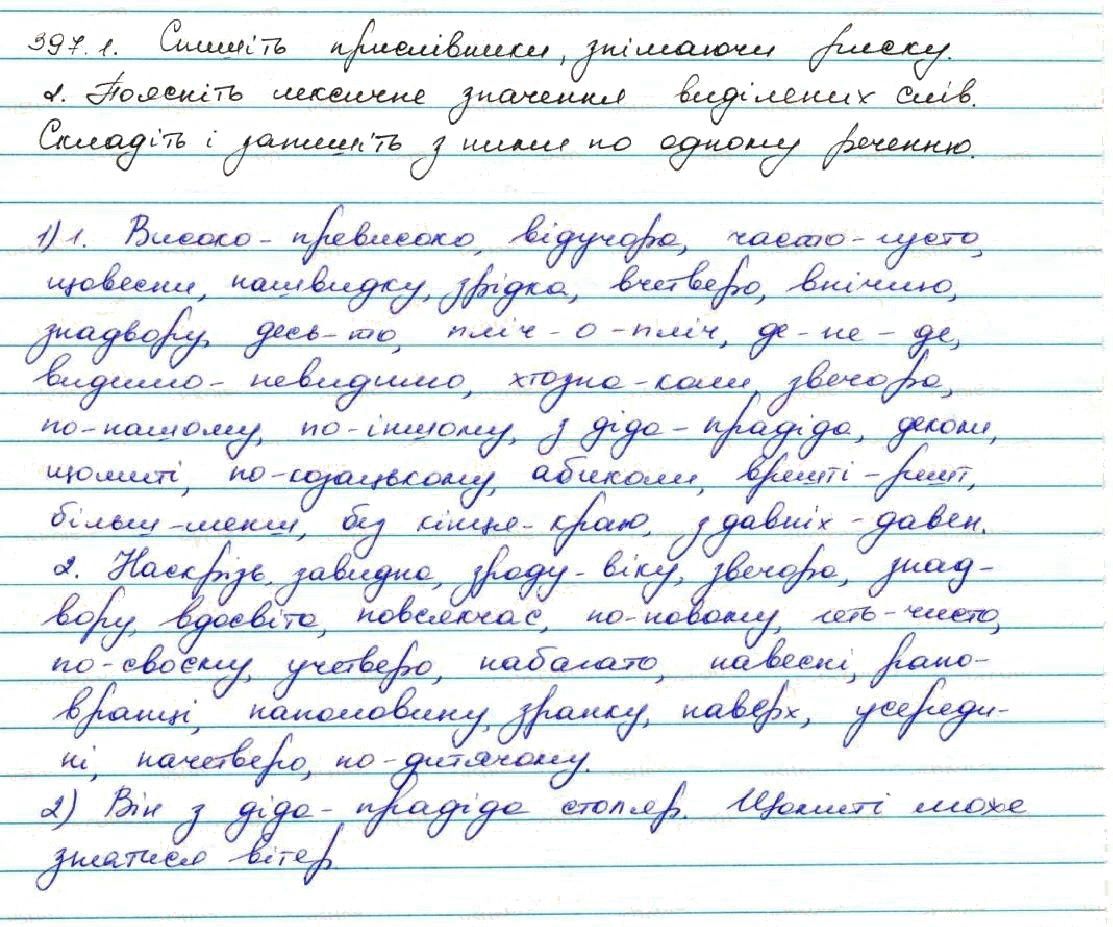 397.1. Спишіть прислівники, знімаючи риску.
2. Поясніть лексичне значення виділених слів.
Складіть і запишіть з ними по одному реченню.
1) 1. Високо-превисоко, відучора, часто-густо,
щовесни, нашвидку, зрідка, вчетверо, внічию,
знадвору, десь-то, пліч-о-пліч, де-не-де,
видимо-невидимо, хтозна-коли, звечора,
по-нашому, по-іншому, з діда-прадіда, деколи,
щомиті, по-козацькому, абиколи, врешті-решт,
більш-менш, без кінця-краю, з давніх-давен.
2. Наскрізь, завидна, зроду-віку, звечора, знад-
вору, вдосвіта, повсякчас, по-новому, геть-чисто,
по-своєму, учетверо, набагато, навесні, рано-
вранці, наполовину, зранку, наверх, усереди-
ні, начетверо, по-дитячому.
2) Він з діда-прадіда столяр. Щомиті може
знятися вітер.